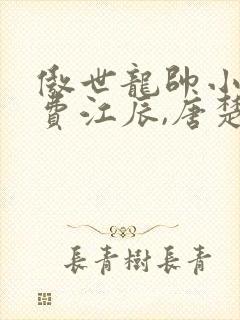 傲世龍帥小
費江辰,唐楚
長青樹長青